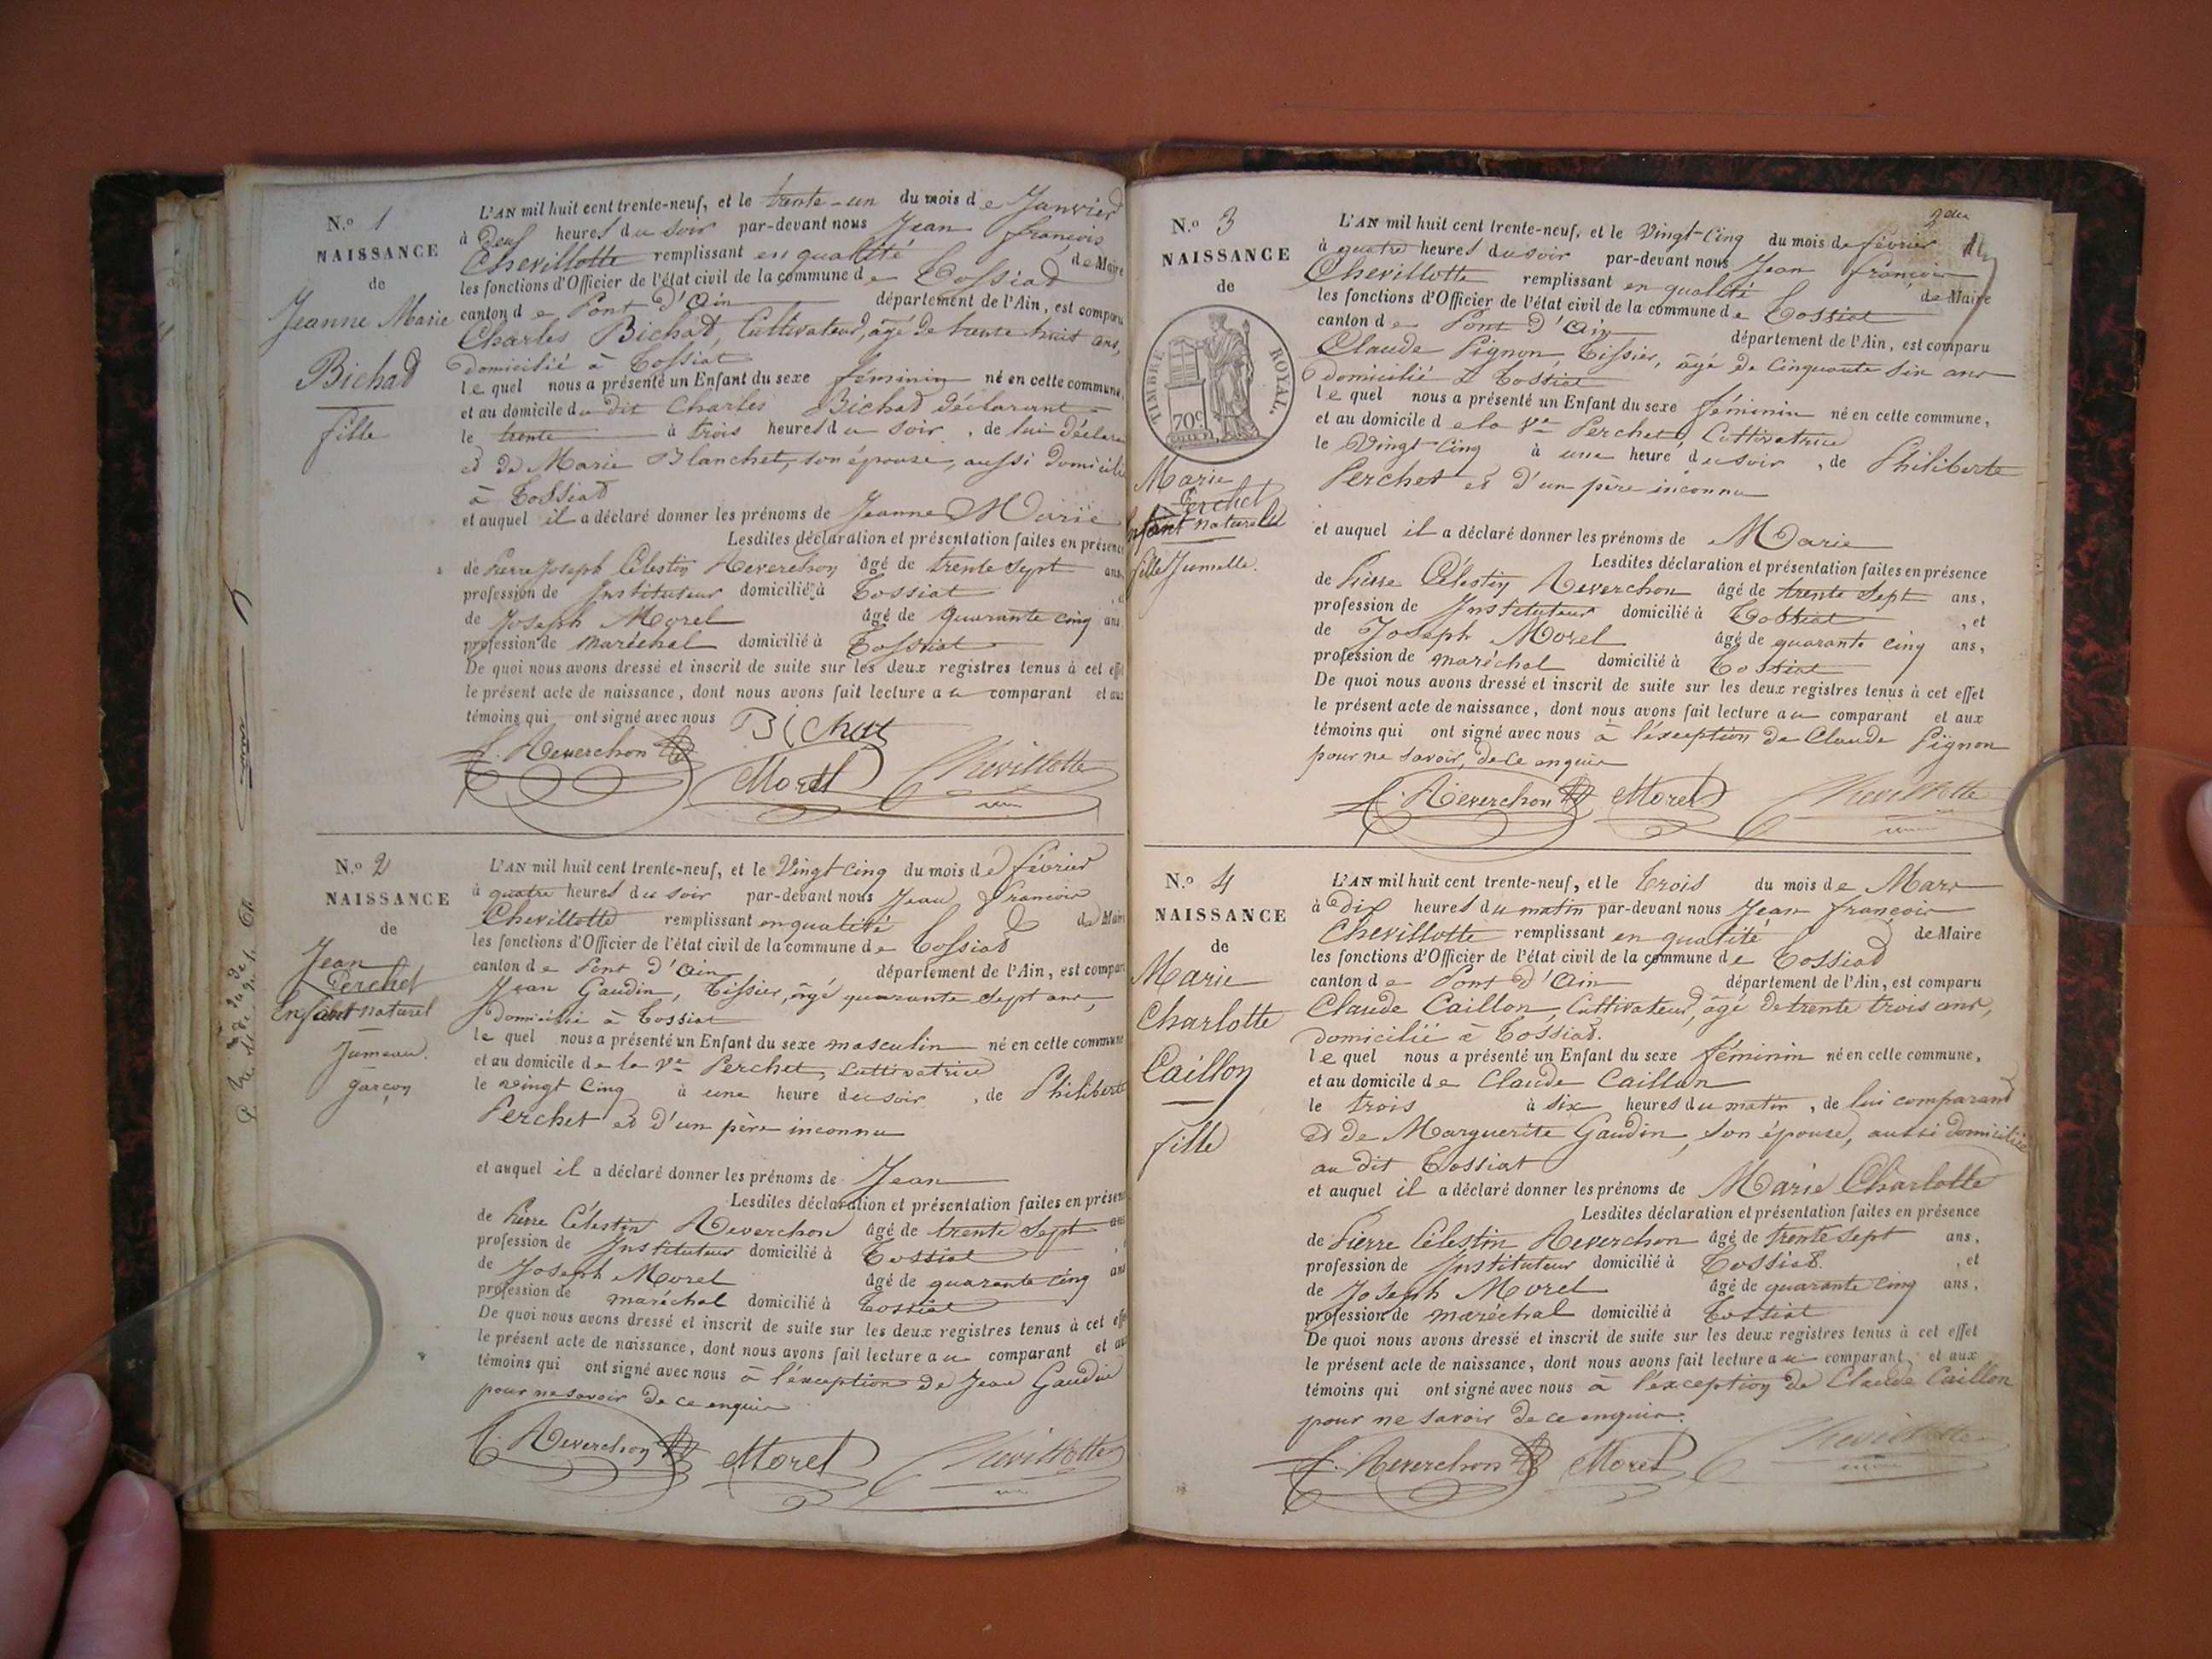 N.o 1
NAISSANCE
de
Jeanne Marie
Bichat
fille
L'AN mil huit cent trente-neuf, et le trente-un du mois de Janvier
à deux heures du soir par-devant nous Jean françois
Chevillotte remplissant en qualité de Maire
les fonctions d'Officier de l'état civil de la commune de Tossiat
canton de Pont d'Ain département de l'Ain, est comparu
Charles Bichat, Cultivateur, âgé de trente huit ans,
domicilié à Tossiat
le quel nous a présenté un Enfant du sexe féminin né en cette commune,
et au domicile du dit Charles Bichat déclarant
le trente à trois heures du soir, de lui déclara
et de Marie Blanchet, son épouse, aussi domicilié
à Tossiat
et auquel il a déclaré donner les prénoms de Jeanne Marie
Lesdites déclaration et présentation faites en présence
de Pierre Joseph Célestin Reverchon âgé de trente sept ans,
profession de Instituteur domicilié à Tossiat, et
de Joseph Morel âgé de quarante cinq ans
profession de maréchal domicilié à Tossiat
De quoi nous avons dressé et inscrit de suite sur les deux registres tenus à cet effet
le présent acte de naissance, dont nous avons fait lecture au comparant et aux
témoins qui ont signé avec nous Bichat
Reverchon Morel Chevillotte
N.o 2
NAISSANCE
de
Jean
Perchet
Enfant naturel
Jumeau.
garçon
L'AN mil huit cent trente-neuf, et le Vingt cinq du mois de février
à quatre heures du soir par-devant nous Jean françois
Chevillotte remplissant en qualité de Maire
les fonctions d'Officier de l'état civil de la commune de Tossiat
canton de Pont d'Ain département de l'Ain, est comparu
Jean Gaudin, Tissier, âgé quarante sept ans,
domicilié à Tossiat
le quel nous a présenté un Enfant du sexe masculin né en cette commune
et au domicile de la Ve Perchet, cultivatrice
le vingt cinq à une heure du soir, de Philiberte
Perchet et d'un père inconnu
et auquel il a déclaré donner les prénoms de Jean
Lesdites déclaration et présentation faites en présence
de Pierre Célestin Reverchon âgé de trente sept ans
profession de Instituteur domicilié à Tossiat
de Joseph Morel âgé de quarante cinq ans
profession de maréchal domicilié à Tossiat
De quoi nous avons dressé et inscrit de suite sur les deux registres tenus à cet effet
le présent acte de naissance, dont nous avons fait lecture au comparant et aux
témoins qui ont signé avec nous à l'exception de Jean Gaudin
pour ne savoir de ce enquis
Reverchon Morel Chevillotte
N.o 3
NAISSANCE
de
TIMBRE ROYAL.
70c
Marie
Perchet
Enfant naturelle
fille Jumelle.
L'AN mil huit cent trente-neuf, et le Vingt-Cinq du mois de février
à quatre heures du soir par-devant nous Jean françois
Chevillotte remplissant en qualité de Maire
les fonctions d'Officier de l'état civil de la commune de Tossiat
canton de Pont d'Ain département de l'Ain, est comparu
Claude Pignon, Tissier, âgé de Cinquante six ans
domicilié à Tossiat
le quel nous a présenté un Enfant du sexe féminin né en cette commune,
et au domicile de la Ve Perchet, Cultivatrice
le Vingt Cinq à une heure du soir, de Philiberte
Perchet et d'un père inconnu
et auquel il a déclaré donner les prénoms de Marie
Lesdites déclaration et présentation faites en présence
de Pierre Célestin Reverchon âgé de trente sept ans,
profession de Instituteur domicilié à Tossiat, et
de Joseph Morel âgé de quarante cinq ans,
profession de maréchal domicilié à Tossiat
De quoi nous avons dressé et inscrit de suite sur les deux registres tenus à cet effet
le présent acte de naissance, dont nous avons fait lecture au comparant et aux
témoins qui ont signé avec nous à l'exception de Claude Pignon
pour ne savoir, de ce enquis
Reverchon Morel Chevillotte
N.o 4
NAISSANCE
de
Marie
Charlotte
Caillon
fille
L'AN mil huit cent trente-neuf, et le trois du mois de Mars
à dix heures du matin par-devant nous Jean françois
Chevillotte remplissant en qualité de Maire
les fonctions d'Officier de l'état civil de la commune de Tossiat
canton de Pont d'Ain département de l'Ain, est comparu
Claude Caillon, Cultivateur, âgé de trente trois ans,
domicilié à Tossiat.
le quel nous a présenté un Enfant du sexe féminin né en cette commune,
et au domicile de Claude Caillon
le trois à six heures du matin, de lui comparant
et de Marguerite Gaudin, son épouse, aussi domiciliée
au dit Tossiat
et auquel il a déclaré donner les prénoms de Marie Charlotte
Lesdites déclaration et présentation faites en présence
de Pierre Célestin Reverchon âgé de trente sept ans,
profession de Instituteur domicilié à Tossiat., et
de Joseph Morel âgé de quarante cinq ans,
profession de maréchal domicilié à Tossiat
De quoi nous avons dressé et inscrit de suite sur les deux registres tenus à cet effet
le présent acte de naissance, dont nous avons fait lecture au comparant, et aux
témoins qui ont signé avec nous à l'exception de Claude Caillon
pour ne savoir de ce enquis.
Reverchon Morel Chevillotte